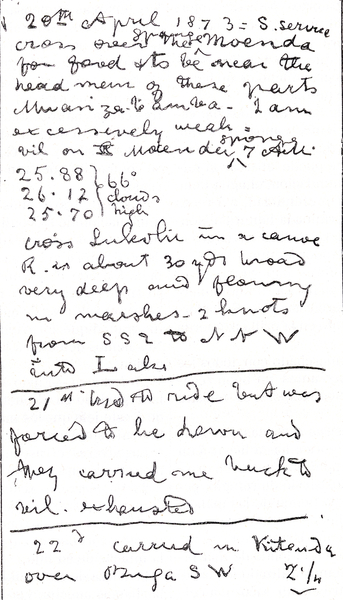 20th April 1873 = S. service
cross over the sponge Moenda
for food & to be near the
head men of these parts
Moanzambamba - I am
excessively weak =
vil on Moenda sponge 7 A.M.
25.88
26.12
25.70
66°
clouds
high
cross Lukolu in a canoe
R. is about 30 yds broad
very deep and flowing
in marshes - 2 knots
from SSE to NNW
into Lake
21st tried to ride but was
forced to lie down and
they carried me back to
vil. exhausted
22d carried in Kitanda
over Buga SW 2¼